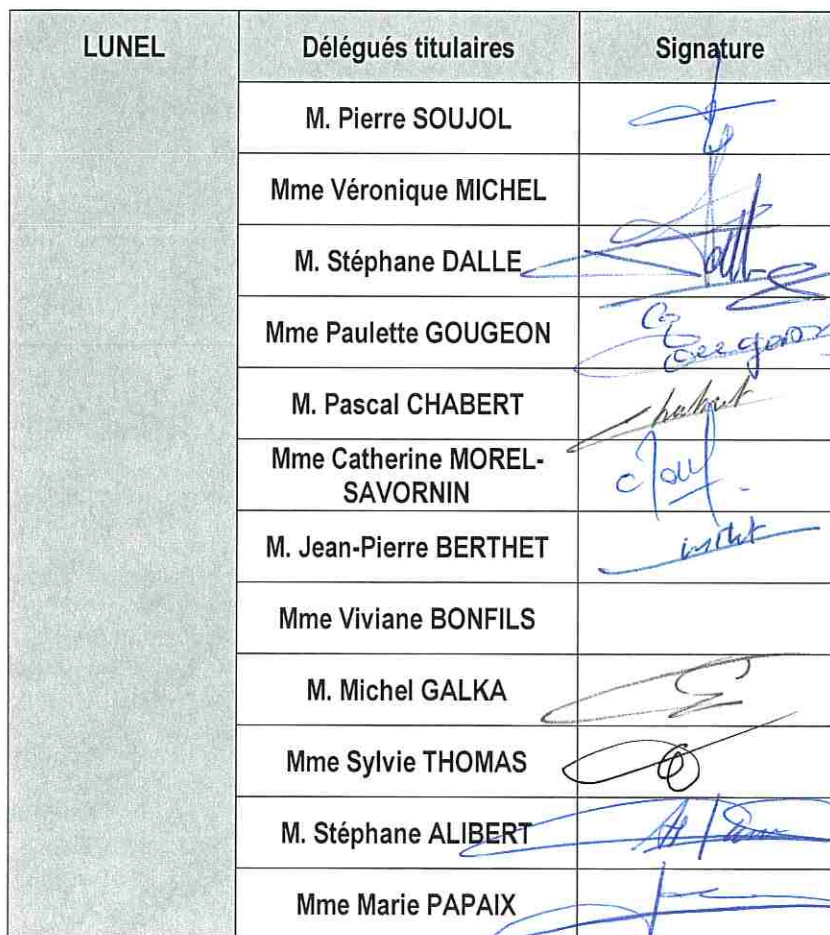 LUNEL Délégués titulaires Signature
M. Pierre SOUJOL
Mme Véronique MICHEL
M. Stéphane DALLE
Mme Paulette GOUGEON
M. Pascal CHABERT
Mme Catherine MOREL-
SAVORNIN
M. Jean-Pierre BERTHET
Mme Viviane BONFILS
M. Michel GALKA
Mme Sylvie THOMAS
M. Stéphane ALIBERT
Mme Marie PAPAIX